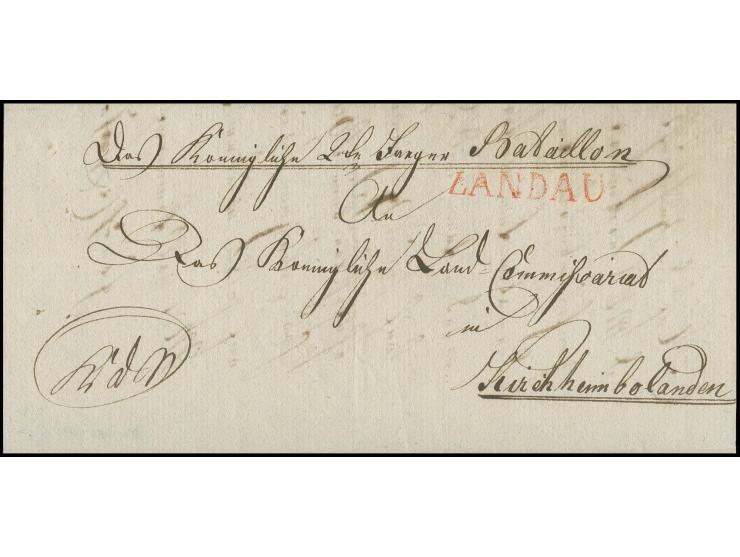 Das Koenigliche 2te Jaeger Bataillon
LANDAU
An
Das Koenigliche Land-Commissariat
in
Kirchheimbolanden